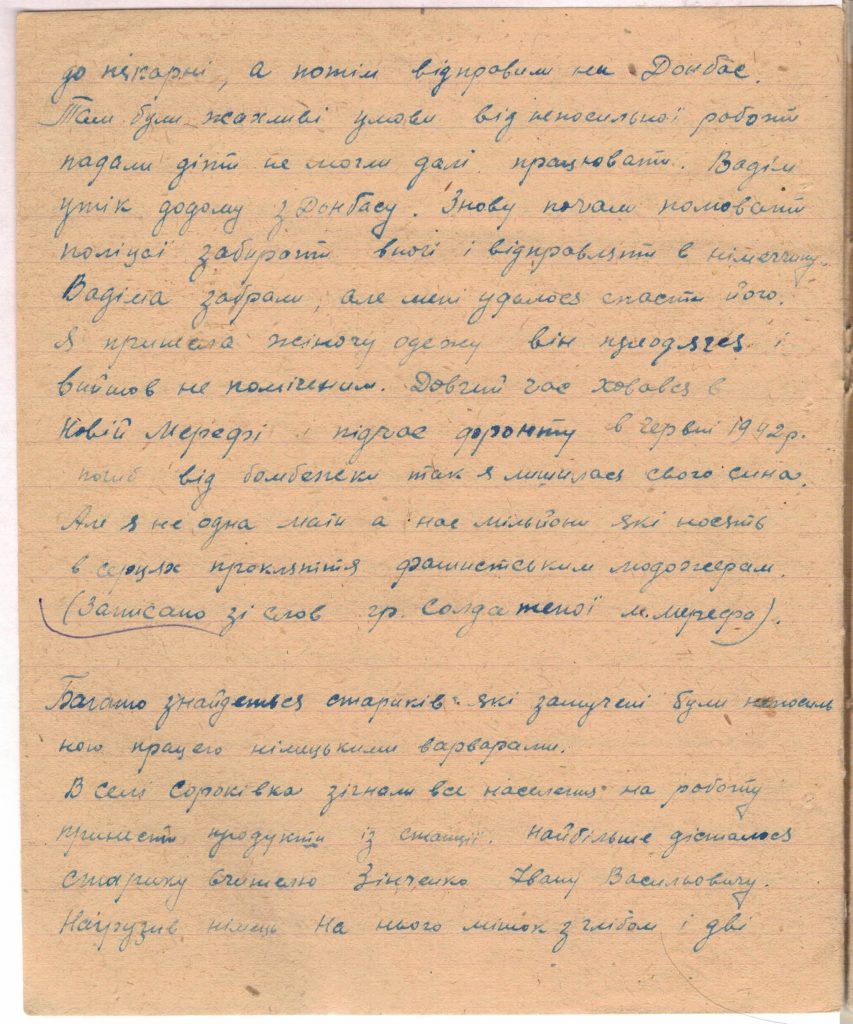 до пекарні, а потім відправили на Донбас.
Там були жахливі умови від непосильної роботи
падали діти не могли далі працювати. Вадім
утік додому з Донбасу. Знову почали полювати
поліцаї забирати вночі і відправляти в німеччину.
Вадіма забрали, але мені удалося спасти його.
Я принесла жіночу одежу він переодягся і
вийшов не поміченим. Довгий час ховався в
Новій Мерефі і підчас фронту в червні 1942р.
погиб від бомбежки так я лишилася свого сина.
Але я не одна мати а нас мільйони які носять
в серцях прокляття фашистським людожерам.
(Записано зі слов гр. Солдатеної м. мерефа).
Багато знайдеться стариків які замучені були непосиль
ною працею німецькими варварами.
В селі Сороківка зігнали все населення на роботу
принести продукти із станції. найбільше дісталося
старику вчителю Зінченко Івану Васильовичу.
Нагрузив німець на нього мішок з хлібом і дві